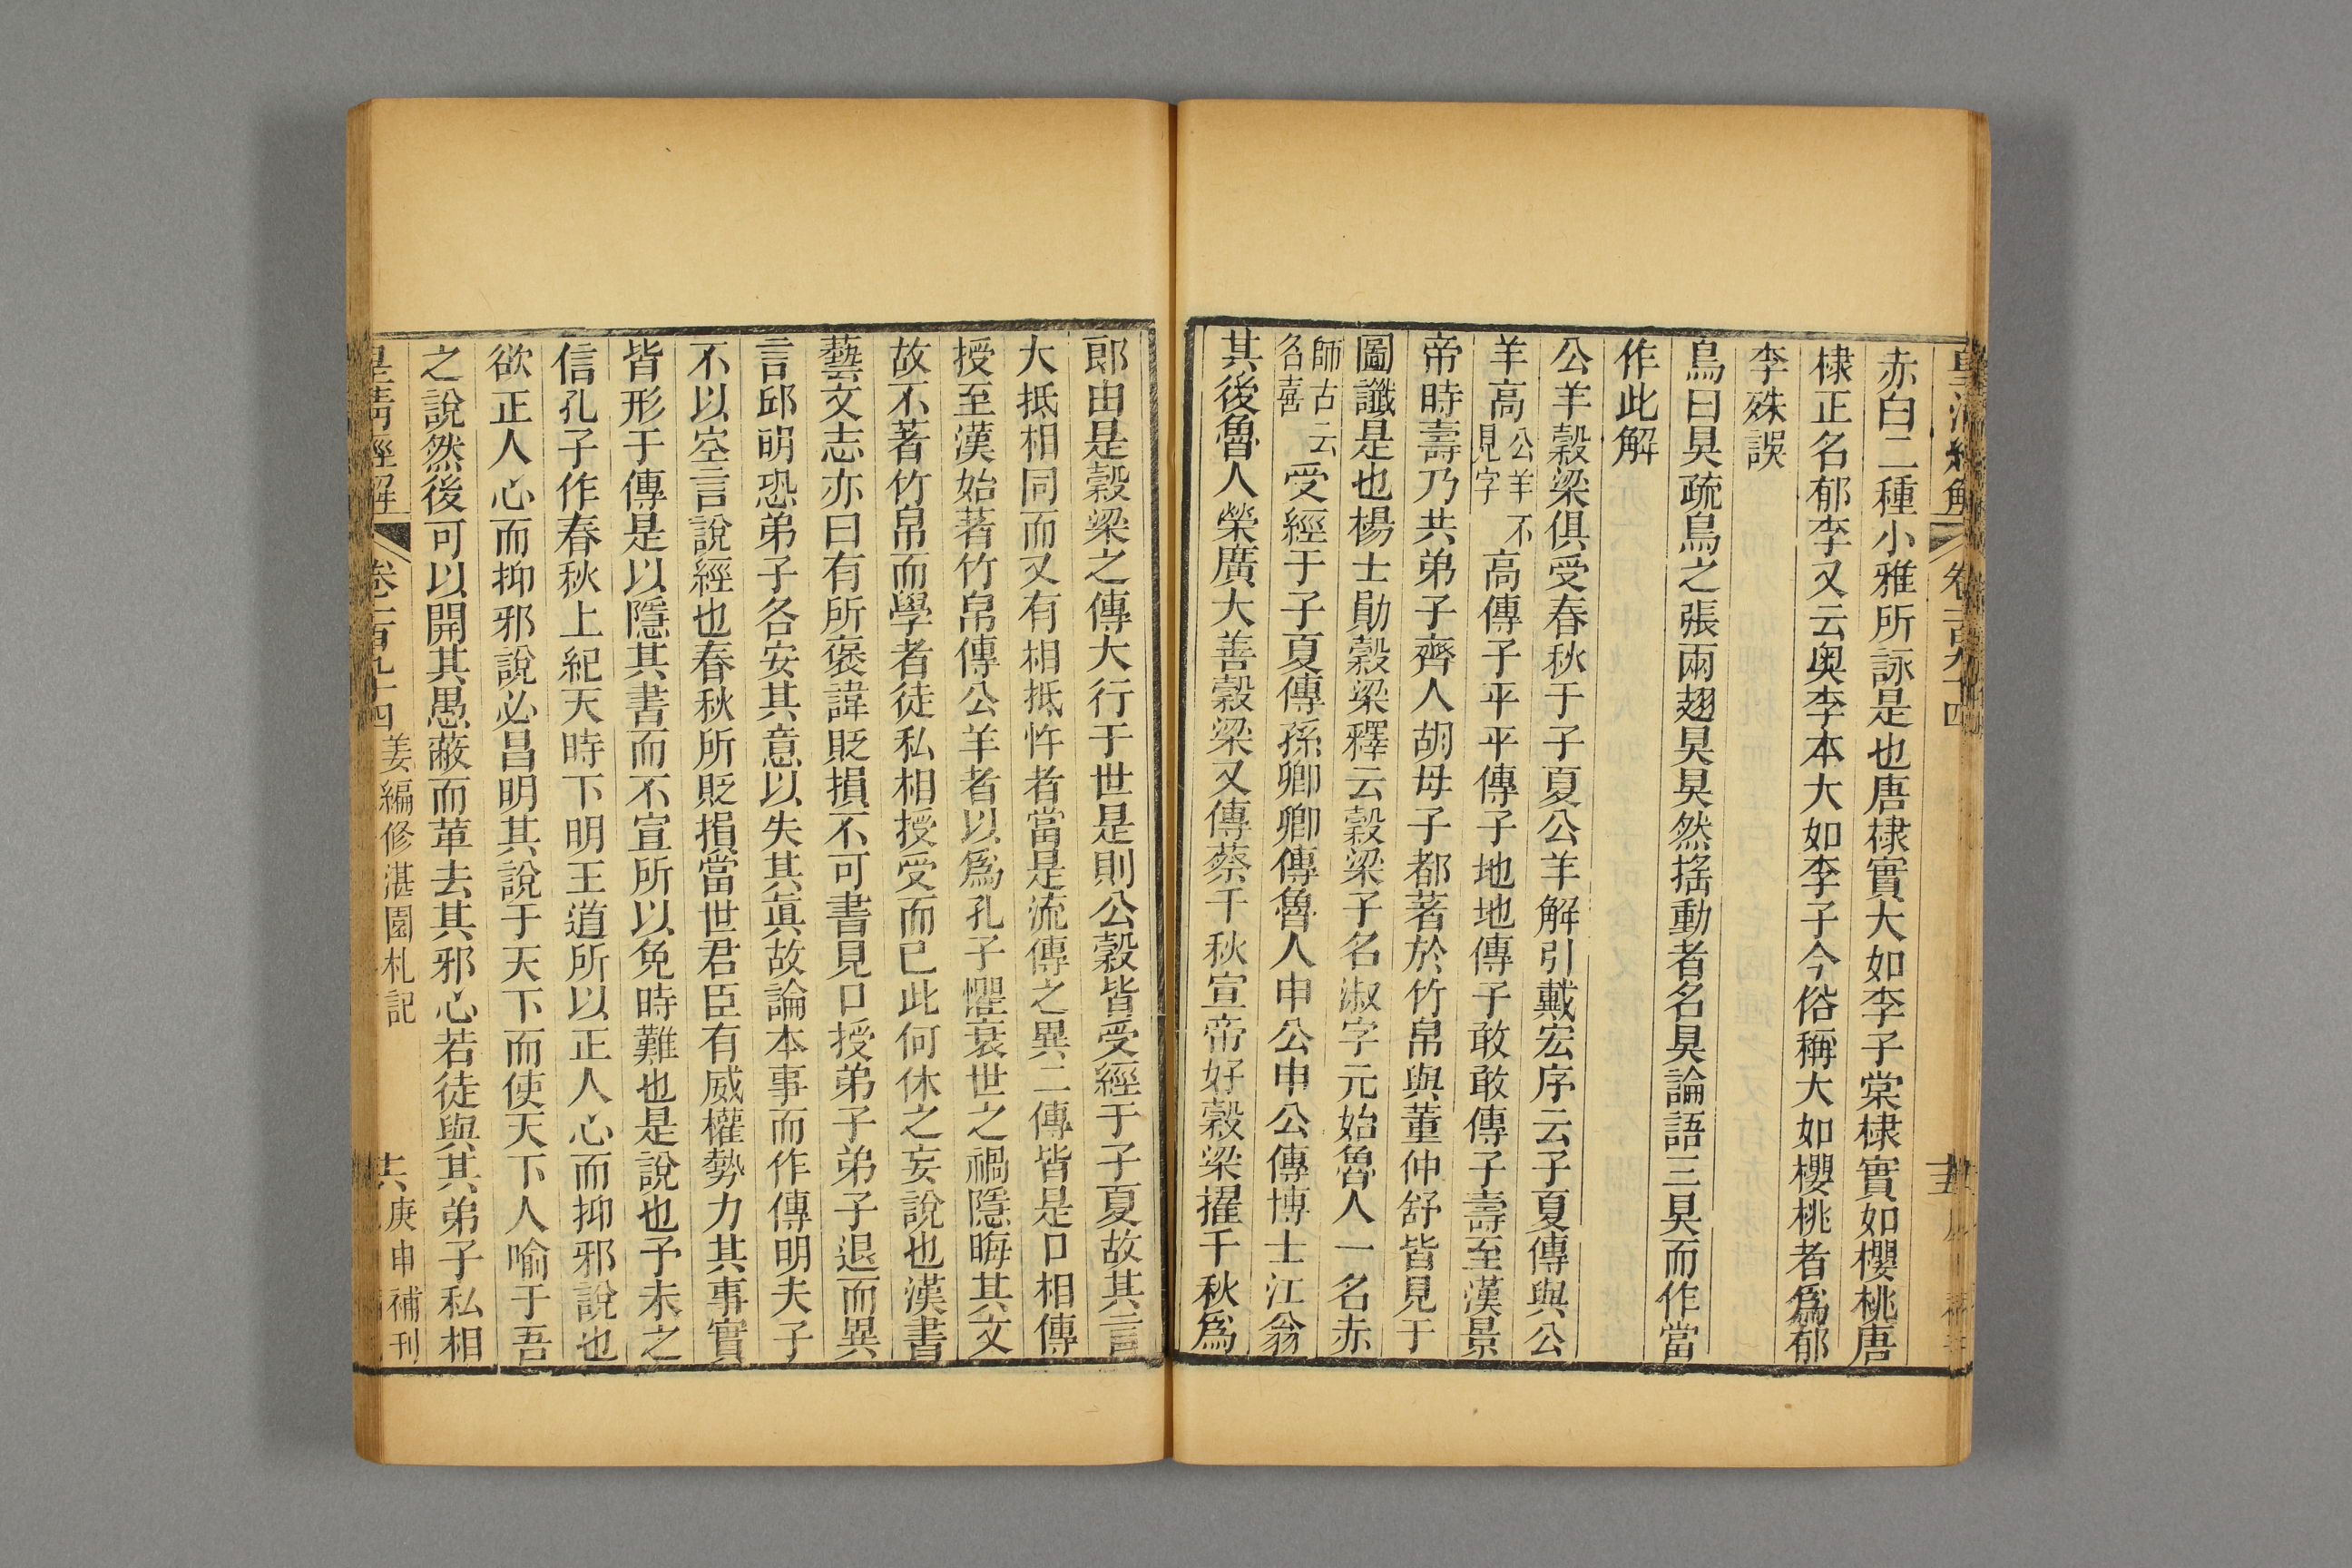 皇清經解 卷一百九十四
赤白二種小雅所詠是也唐棣實大如李子棠棣實如櫻桃唐
棣正名郁李又云奥李本大如李子今俗稱大如櫻桃者爲郁
李殊誤
鳥曰狊疏鳥之張兩翅狊狊然搖動者名狊論語三狊而作當
作此解
公羊穀梁俱受春秋于子夏公羊解引戴宏序云子夏傳與公
羊高公羊不見字高傳子平平傳子地地傳子敢敢傳子壽至漢景
帝時壽乃共弟子齊人胡母子都著於竹帛與董仲舒皆見于
圖讖是也楊士勛穀梁釋云穀梁子名淑字元始魯人一名赤
師古云名喜受經于子夏傳孫卿卿傳魯人申公申公傳博士江翁
其後魯人榮廣大善穀梁又傳蔡千秋宣帝好穀梁擢千秋爲
郎由是穀梁之傳大行于世是則公穀皆受經于子夏故其言
大抵相同而又有相抵忤者當是流傳之異二傳皆是口相傳
授至漢始著竹帛傳公羊者以爲孔子懼衰世之禍隱晦其文
故不著竹帛而學者徒私相授受而已此何休之妄說也漢書
藝文志亦曰有所褒諱貶損不可書見口授弟子弟子退而異
言邱明恐弟子各安其意以失其眞故論本事而作傳明夫子
不以空言說經也春秋所貶損當世君臣有威權勢力其事實
皆形于傳是以隱其書而不宣所以免時難也是說也予未之
信孔子作春秋上紀天時下明王道所以正人心而抑邪說也
欲正人心而抑邪說必昌明其說于天下而使天下人喻于吾
之說然後可以開其愚蔽而革去其邪心若徒與其弟子私相
皇清經解 卷一百九十四 姜編修湛園札記 六 庚申補刊